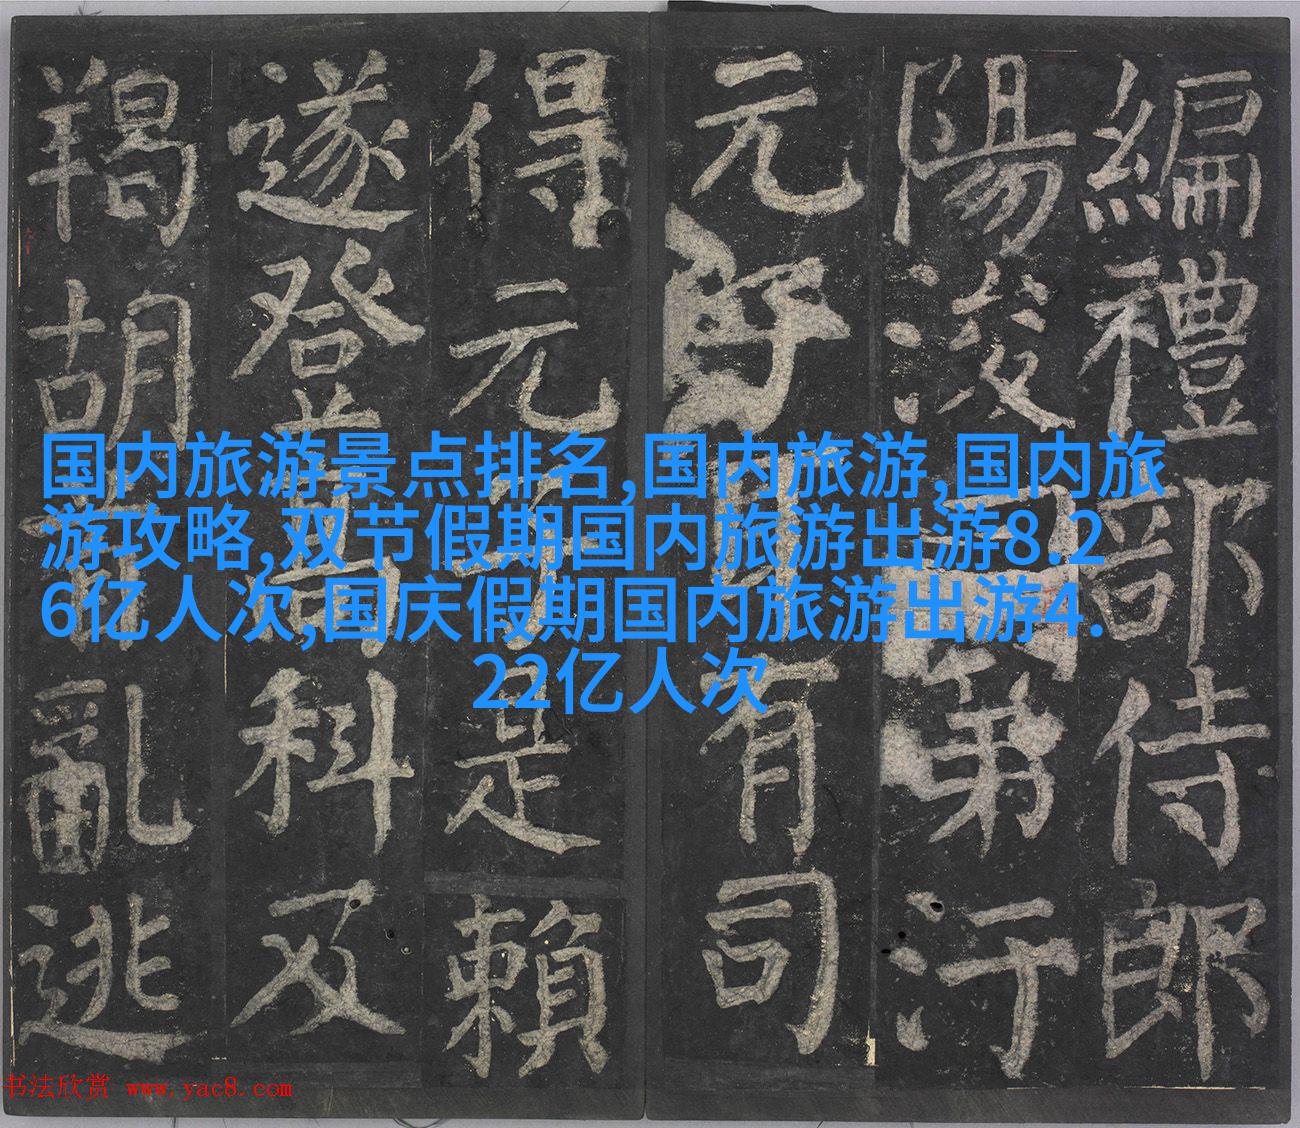 編禮部侍郎
陽浚第汙
元子有司
得元子是賴
遂登高科及
羯胡首亂逃
国内旅游景点排名,国内旅游,国内旅
游攻略,双节假期国内旅游出游8.2
6亿人次,国庆假期国内旅游出游4.
22亿人次
书法欣赏 www.yac8.com